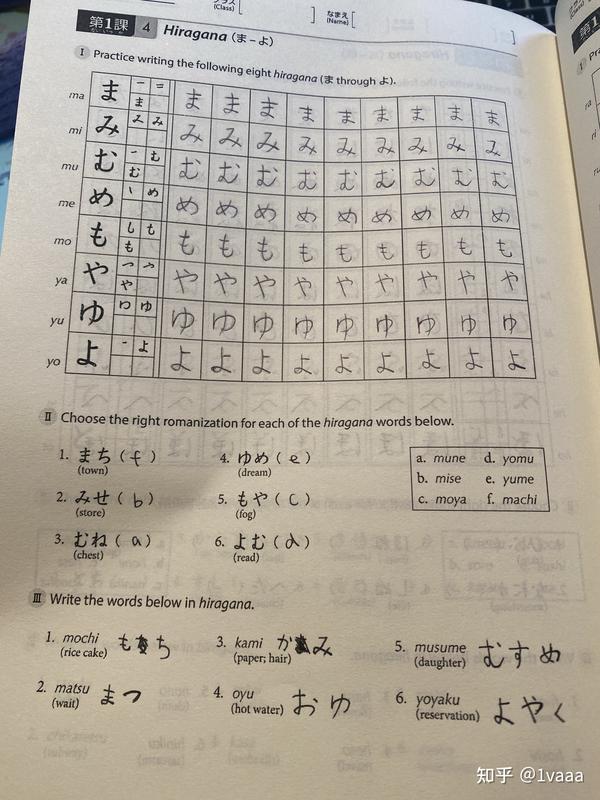 クラス (Class) [ ] なまえ (Name) [ ]
第1課 4 Hiragana (ま – よ)
I Practice writing the following eight hiragana (ま through よ).
ma ま ま ま ま ま ま ま ま ま ま
mi み み み み み み み み み み み み
mu む む む む む む む む む む む む
me め め め め め め め め め め め
mo も し も も も も も も も も も も も も
ya や つ や や や や や や や や や や や
yu ゆ ゆ ゆ ゆ ゆ ゆ ゆ ゆ ゆ ゆ ゆ
yo よ よ よ よ よ よ よ よ よ よ よ
II Choose the right romanization for each of the hiragana words below.
1. まち ( f ) 4. ゆめ ( e ) a. mune d. yomu
(town) (dream)
b. mise e. yume
2. みせ ( b ) 5. もや ( c ) c. moya f. machi
(store) (fog)
3. むね ( a ) 6. よむ ( d )
(chest) (read)
III Write the words below in hiragana.
1. mochi もち 3. kami かみ 5. musume むすめ
(rice cake) (paper; hair) (daughter)
2. matsu まつ 4. oyu おゆ 6. yoyaku よやく
(wait) (hot water) (reservation)
知乎 @1vaaa